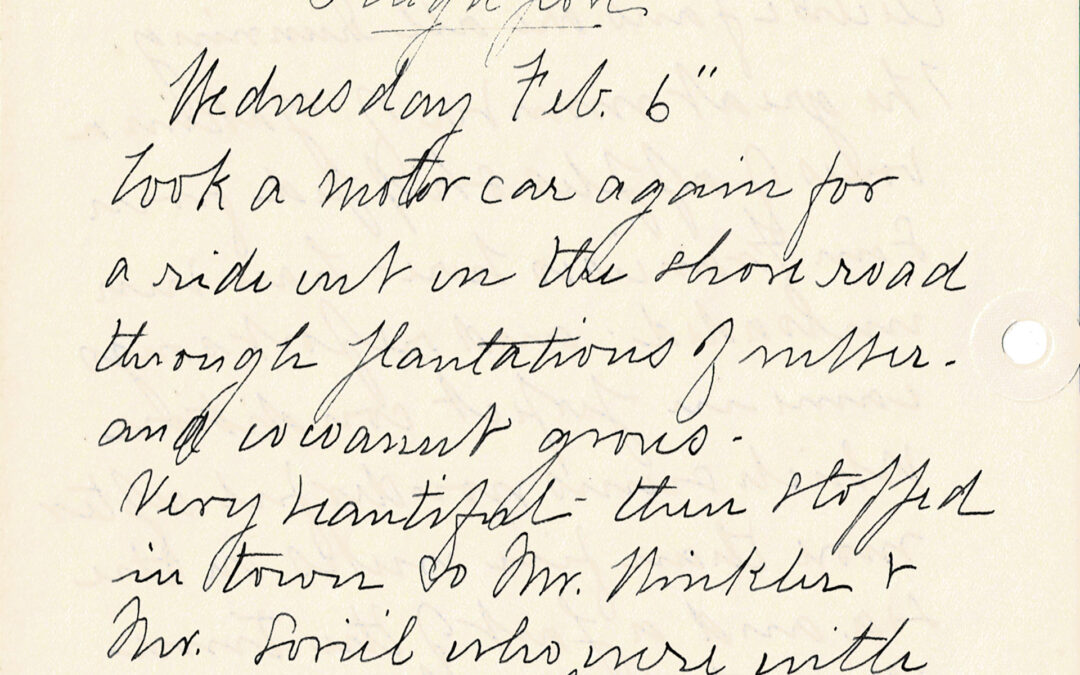 Wednesday Feb. 6"
took a motor car again for
a ride out on the shore road
through plantations of rubber.
and cocoanut groves.
Very beautiful - then stopped
in town so Mr. Winkler &
Mr. who were with